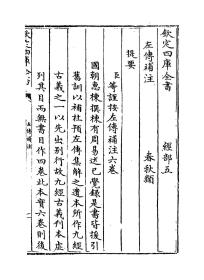 欽定四庫全書　　經部五
左傳補注　　春秋類
提要
臣等謹按左傳補注六卷
國朝惠棟撰棟有周易述已著錄是書皆援引
舊訓以補杜預左傳集解之遺本所作九經
古義之一以先出别行故九經古義刋本虚
列其目而無書目作四卷此本實六卷則後